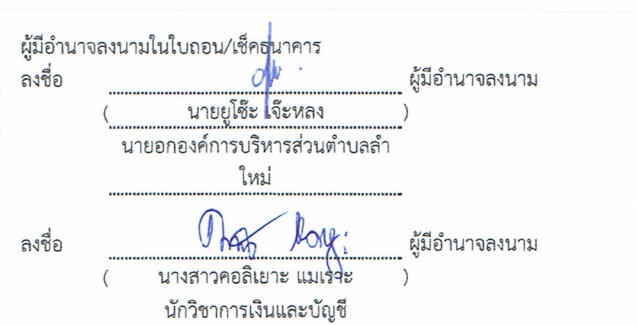 ผู้มีอำนาจลงนามในใบถอน/เช็คธนาคาร
ลงชื่อ ผู้มีอำนาจลงนาม
( นายยูโซ๊ะ เจ๊ะหลง )
นายอกองค์การบริหารส่วนตำบลลำ
ใหม่
ลงชื่อ ผู้มีอำนาจลงนาม
( นางสาวคอลิเยาะ แมเราะ )
นักวิชาการเงินและบัญชี